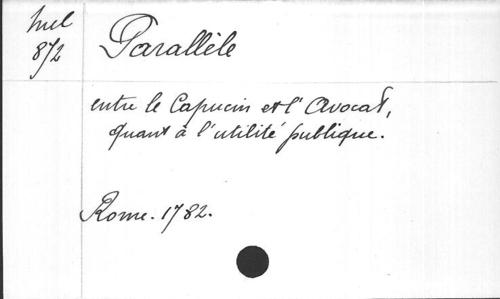 Mel
872
Parallèle
entre le Capucin et l'Avocat,
quant à l'utilité publique.
Rome. 1782.